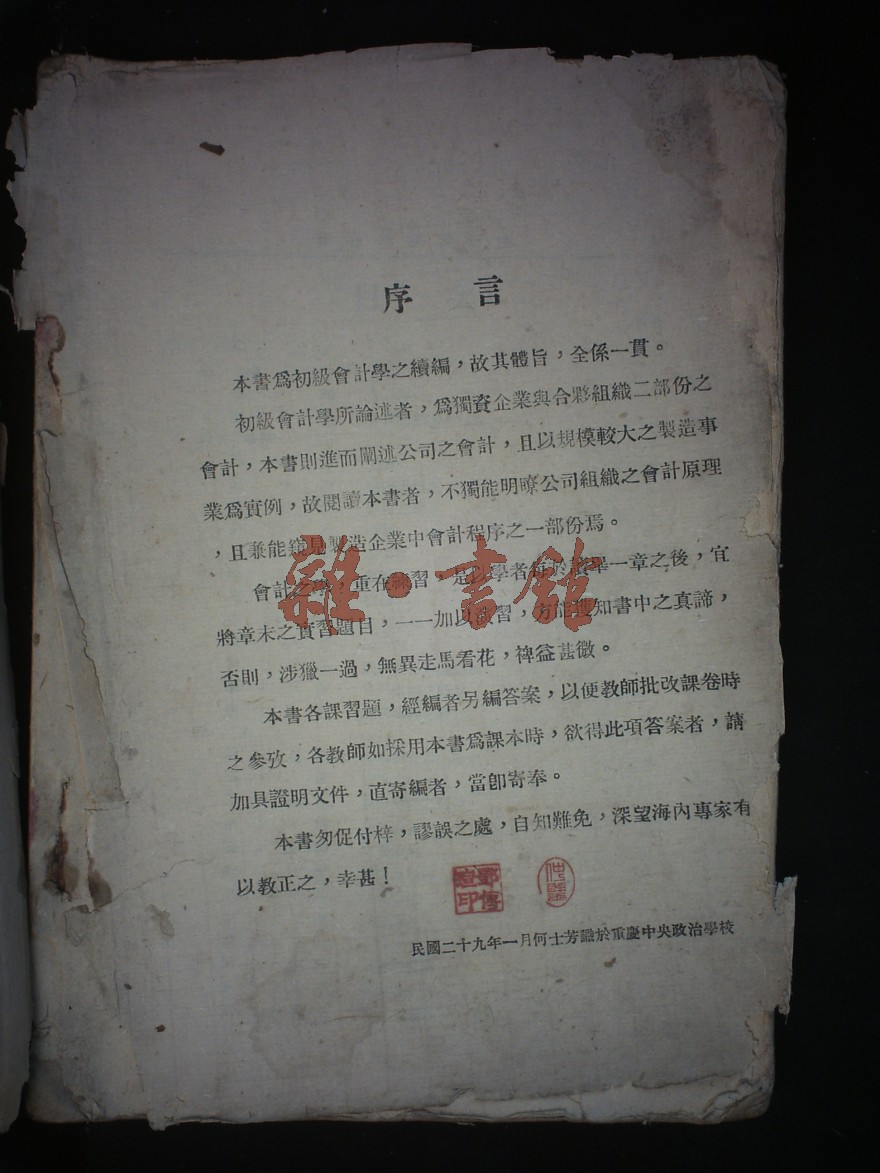 序言
本書爲初級會計學之續編，故其體旨，全係一貫。
初級會計學所論述者，爲獨資企業與合夥組織二部份之
會計，本書則進而闡述公司之會計，且以規模較大之製造事
業爲實例，故閱讀本書者，不獨能明瞭公司組織之會計原理
，且兼能窺見製造企業中會計程序之一部份焉。
會計之學，重在練習，是以學者每於讀畢一章之後，宜
將章末之實習題目，一一加以演習，方能獲知書中之真諦，
否則，涉獵一過，無異走馬看花，裨益甚微。
本書各課習題，經編者另編答案，以便教師批改課卷時
之參攷，各教師如採用本書爲課本時，欲得此項答案者，請
加具證明文件，直寄編者，當卽寄奉。
本書匆促付梓，謬誤之處，自知難免，深望海內專家有
以教正之，幸甚！
民國二十九年一月何士芳識於重慶中央政治學校
雜·書館